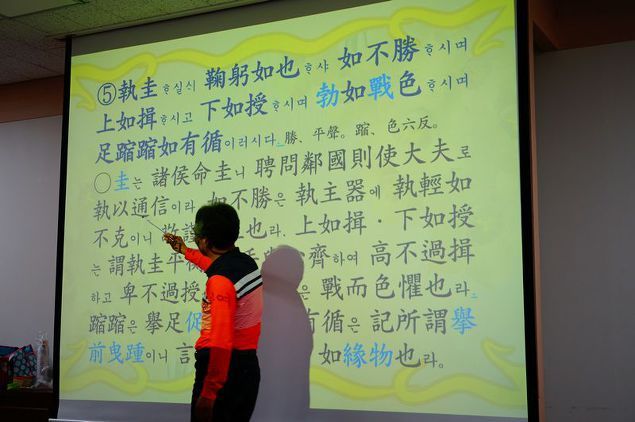 ⑤執圭ᄒᆞ실ᄉᆡ 鞠躬如也ᄒᆞ샤 如不勝ᄒᆞ시며
上如揖ᄒᆞ시고 下如授ᄒᆞ시며 勃如戰色ᄒᆞ시며
足蹜蹜如有循이러시다. 勝、平聲。蹜、色六反。
○圭는 諸侯命圭니 聘問鄰國則使大夫로
執以通信이라. 如不勝은 執主器에 執輕如
不克이니 敬謹 也라. 上如揖·下如授
는 謂執圭平衡 手 齊하여 高不過揖
하고 卑不過授 은 戰而色懼也라.
蹜蹜은 擧足促 有循은 記所謂擧
前曳踵이니 言 如緣物也라.